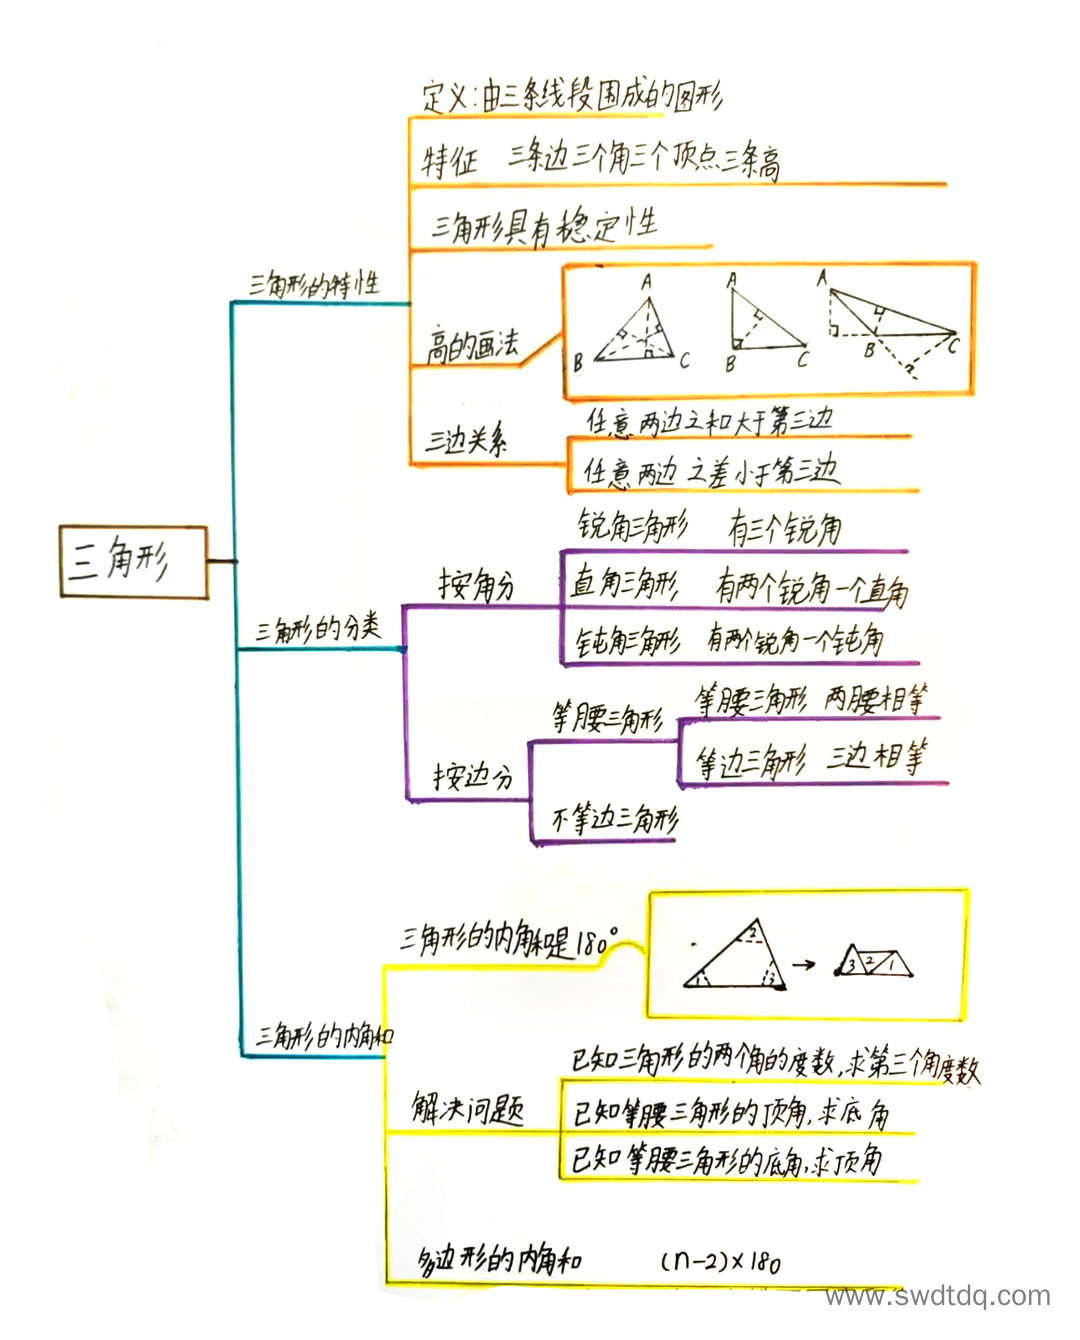 定义:由三条线段围成的图形
特征 三条边三个角三个顶点三条高
三角形具有稳定性
三角形的特性
A A A
高的画法
B C B C B C
任意两边之和大于第三边
三边关系
任意两边之差小于第三边
锐角三角形 有三个锐角
三角形
按角分
直角三角形 有两个锐角一个直角
三角形的分类
钝角三角形 有两个锐角一个钝角
等腰三角形
等腰三角形 两腰相等
按边分
等边三角形 三边相等
不等边三角形
三角形的内角和是180°
2
1 3
3 2 1
三角形的内角和
已知三角形的两个角的度数,求第三个角度数
解决问题
已知等腰三角形的顶角,求底角
已知等腰三角形的底角,求顶角
多边形的内角和 (n-2)×180
www.swdtdq.com